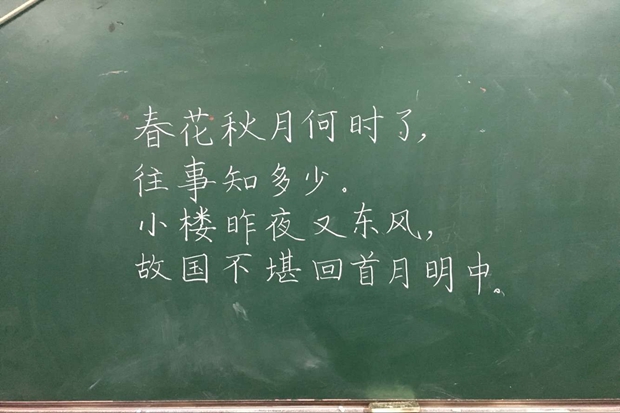 春花秋月何时了,
往事知多少。
小楼昨夜又东风,
故国不堪回首月明中。